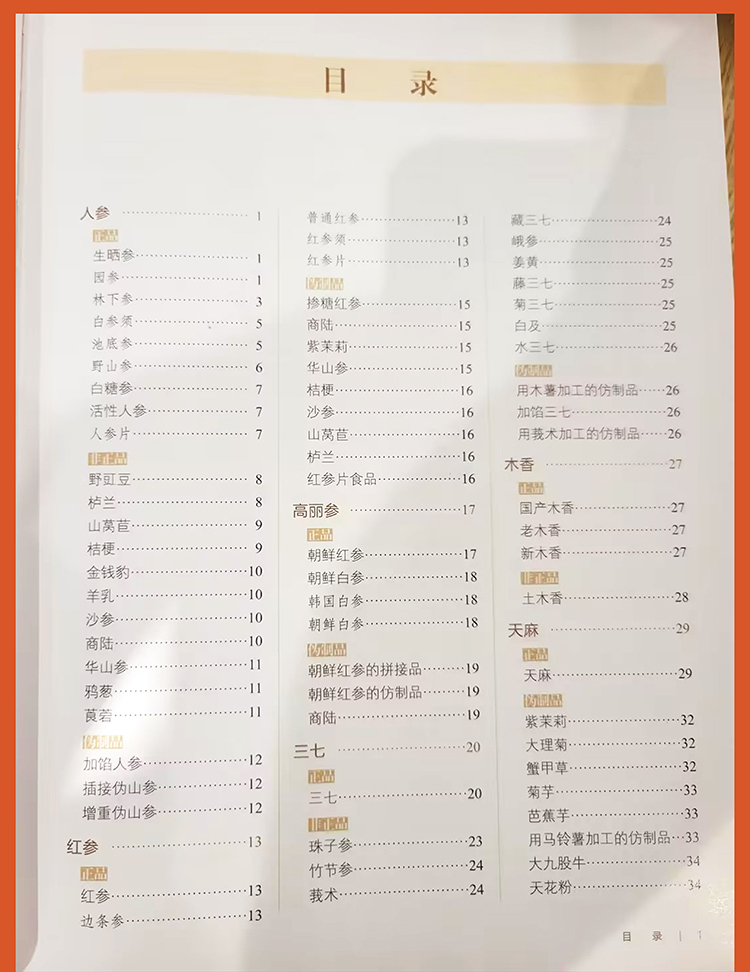 目 录
人参 1
正品
生晒参 1
园参 1
林下参 3
白参须 5
池底参 5
野山参 6
白糖参 7
活性人参 7
人参片 7
非正品
野豇豆 8
栌兰 8
山莴苣 9
桔梗 9
金钱豹 10
羊乳 10
沙参 10
商陆 10
华山参 11
鸦葱 11
莨菪 11
伪制品
加馅人参 12
插接伪山参 12
增重伪山参 12
红参 13
正品
红参 13
边条参 13
普通红参 13
红参须 13
红参片 13
伪制品
掺糖红参 15
商陆 15
紫茉莉 15
华山参 15
桔梗 16
沙参 16
山莴苣 16
栌兰 16
红参片食品 16
高丽参 17
正品
朝鲜红参 17
朝鲜白参 18
韩国白参 18
朝鲜白参 18
伪制品
朝鲜红参的拼接品 19
朝鲜红参的仿制品 19
商陆 19
三七 20
正品
三七 20
非正品
珠子参 23
竹节参 24
莪术 24
藏三七 24
峨参 25
姜黄 25
藤三七 25
菊三七 25
白及 25
水三七 26
伪制品
用木薯加工的仿制品 26
加馅三七 26
用莪术加工的仿制品 26
木香 27
正品
国产木香 27
老木香 27
新木香 27
非正品
土木香 28
天麻 29
正品
天麻 29
伪制品
紫茉莉 32
大理菊 32
蟹甲草 32
菊芋 33
芭蕉芋 33
用马铃薯加工的仿制品 33
大九股牛 34
天花粉 34
目 录 | 1